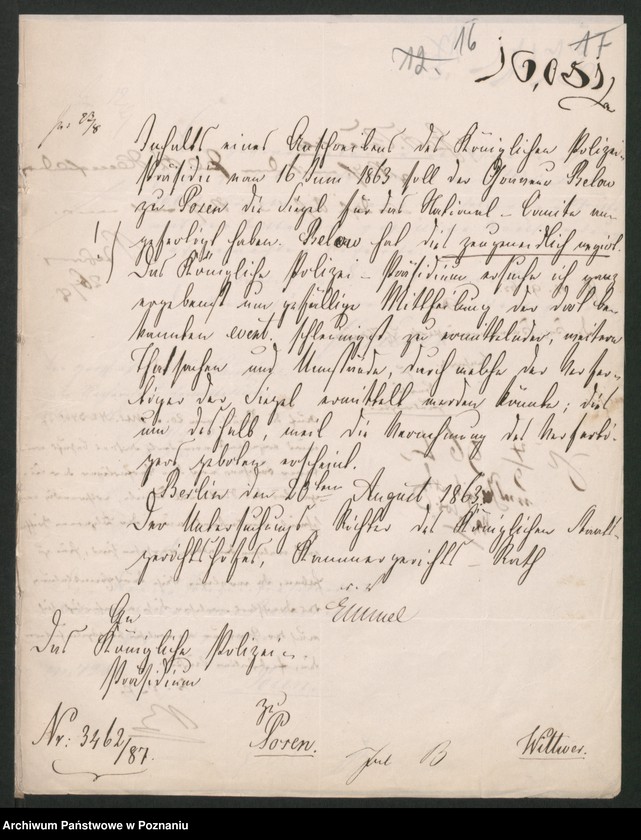 12. 16 17
16,051
pr. 23/8
Inhalts eines Anschreibens des Königlichen Polizei-
Präsidii vom 16 Juni 1863 soll der Graveur Below
zu Posen die Siegel für das National-Comite an-
gefertigt haben. Below hat dies zeugeneidlich negirt.
Das Königliche Polizei-Präsidium ersuche ich ganz
ergebenst um gefällige Mittheilung der dort be-
kannten event. schleunigst zu ermittelnden, weitern
Thatsachen und Umstände, durch welche der Verfer-
tiger der Siegel ermittelt werden könnte; dies
um deshalb, weil die Vernehmung des Verferti-
gers geboten erscheint.
Berlin den 20ten August 1863.
Der Untersuchungs Richter des Königlichen Staats-
gerichtshofes, Kammergerichts-Rath
Emmel
An
Das Königliche Polizei-
Präsidium
zu
Posen.
Nr: 3462/87.
B
Wittwer.
Archiwum Państwowe w Poznaniu